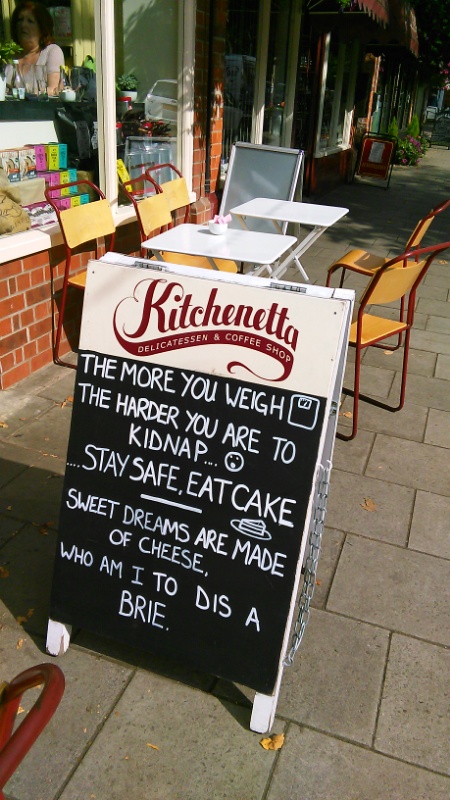 Kitchenetta
DELICATESSEN & COFFEE SHOP
THE MORE YOU WEIGH
THE HARDER YOU ARE TO
KIDNAP....
....STAY SAFE, EAT CAKE
SWEET DREAMS ARE MADE
OF CHEESE,
WHO AM I TO DIS A
BRIE.